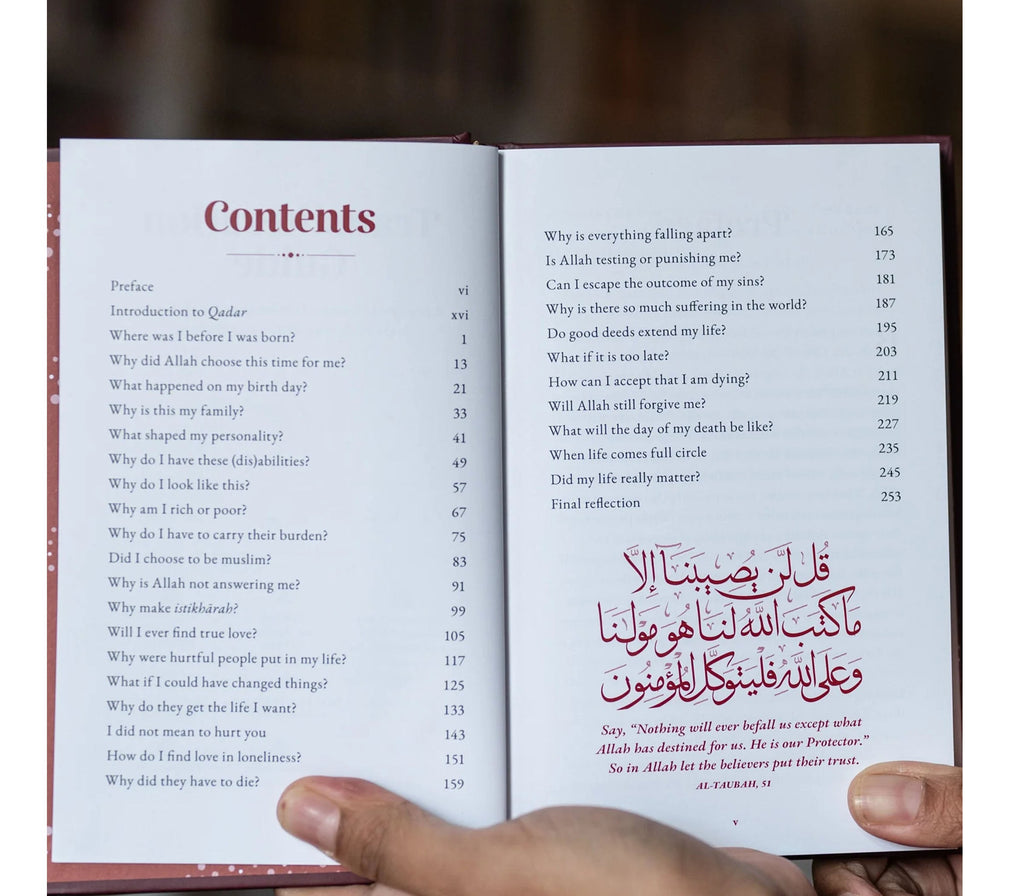 Contents
Preface vi
Introduction to Qadar xvi
Where was I before I was born? 1
Why did Allah choose this time for me? 13
What happened on my birth day? 21
Why is this my family? 33
What shaped my personality? 41
Why do I have these (dis)abilities? 49
Why do I look like this? 57
Why am I rich or poor? 67
Why do I have to carry their burden? 75
Did I choose to be muslim? 83
Why is Allah not answering me? 91
Why make istikhārah? 99
Will I ever find true love? 105
Why were hurtful people put in my life? 117
What if I could have changed things? 125
Why do they get the life I want? 133
I did not mean to hurt you 143
How do I find love in loneliness? 151
Why did they have to die? 159
Why is everything falling apart? 165
Is Allah testing or punishing me? 173
Can I escape the outcome of my sins? 181
Why is there so much suffering in the world? 187
Do good deeds extend my life? 195
What if it is too late? 203
How can I accept that I am dying? 211
Will Allah still forgive me? 219
What will the day of my death be like? 227
When life comes full circle 235
Did my life really matter? 245
Final reflection 253
قُل لَّن يُصِيبَنَآ إِلَّا
مَا كَتَبَ ٱللَّهُ لَنَا هُوَ مَوْلَىٰنَا
وَعَلَى ٱللَّهِ فَلْيَتَوَكَّلِ ٱلْمُؤْمِنُونَ
Say, “Nothing will ever befall us except what
Allah has destined for us. He is our Protector.”
So in Allah let the believers put their trust.
AL-TAUBAH, 51
v